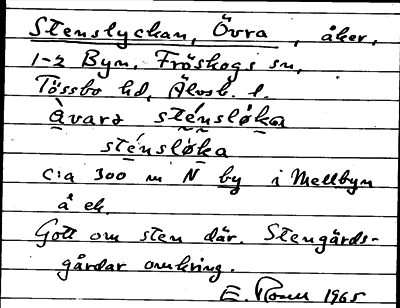 Stenslyckan, Övra, åker,
1-2 Byn, Fröskogs sn,
Tössbo hd, Älvsb. l.
àvara sténsløka
sténsløka
c:a 300 m N by i Mellbyn
å ek.
Gott om sten där. Stengärds-
gårdar omkring.
E. 1965